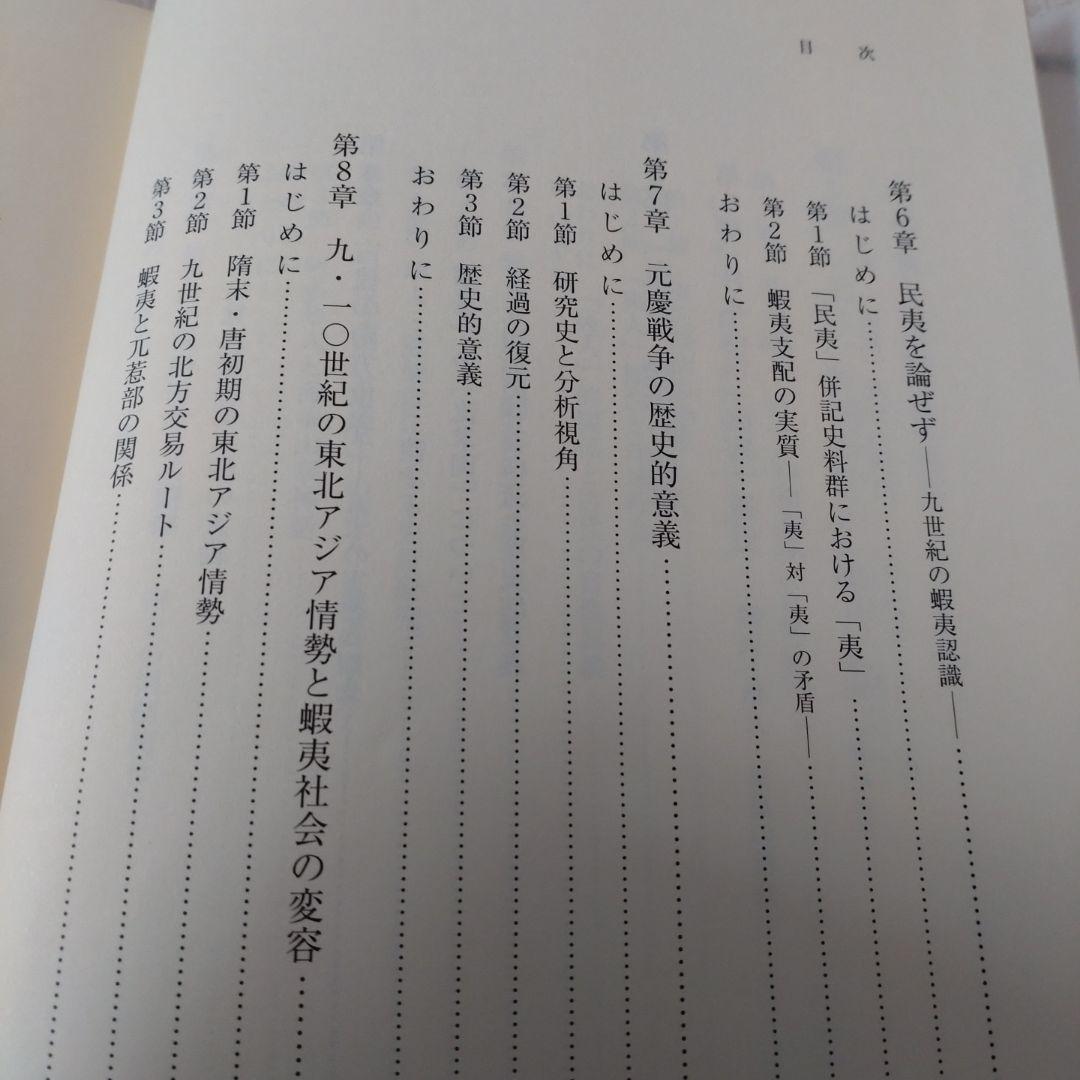 目次
第6章 民夷を論ぜず――九世紀の蝦夷認識――……
はじめに……
第1節 「民夷」併記史料群における「夷」……
第2節 蝦夷支配の実質――「夷」対「夷」の矛盾――……
おわりに……
第7章 元慶戦争の歴史的意義……
はじめに……
第1節 研究史と分析視角……
第2節 経過の復元……
第3節 歴史的意義……
おわりに……
第8章 九・一〇世紀の東北アジア情勢と蝦夷社会の変容……
はじめに……
第1節 隋末・唐初期の東北アジア情勢……
第2節 九世紀の北方交易ルート……
第3節 蝦夷と兀惹部の関係……